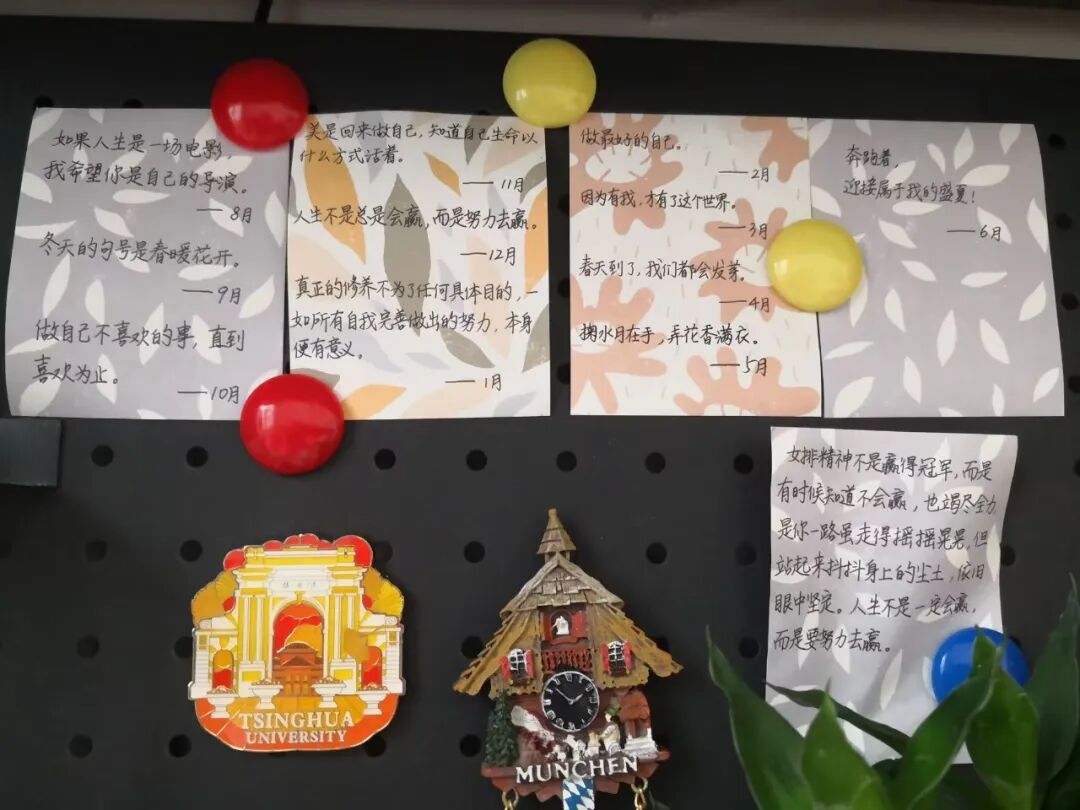 如果人生是一场电影，
我希望你是自己的导演。
——8月
冬天的句号是春暖花开。
——9月
做自己不喜欢的事，直到
喜欢为止。
——10月
美是回来做自己，知道自己生命以
什么方式活着。
——11月
人生不是总是会赢，而是努力去赢。
——12月
真正的修养不为了任何具体目的，一
如所有自我完善做出的努力，本身
便有意义。
——1月
做最好的自己。
——2月
因为有我，才有了这个世界。
——3月
春天到了，我们都会发芽。
——4月
掬水月在手，弄花香满衣。
——5月
奔跑着，
迎接属于我的盛夏！
——6月
女排精神不是赢得冠军，而是
有时候知道不会赢，也竭尽全力
是你一路虽走得摇摇晃晃，但
站起来抖抖身上的尘土，依旧
眼中坚定。人生不是一定会赢，
而是要努力去赢。
TSINGHUA
UNIVERSITY
MÜNCHEN